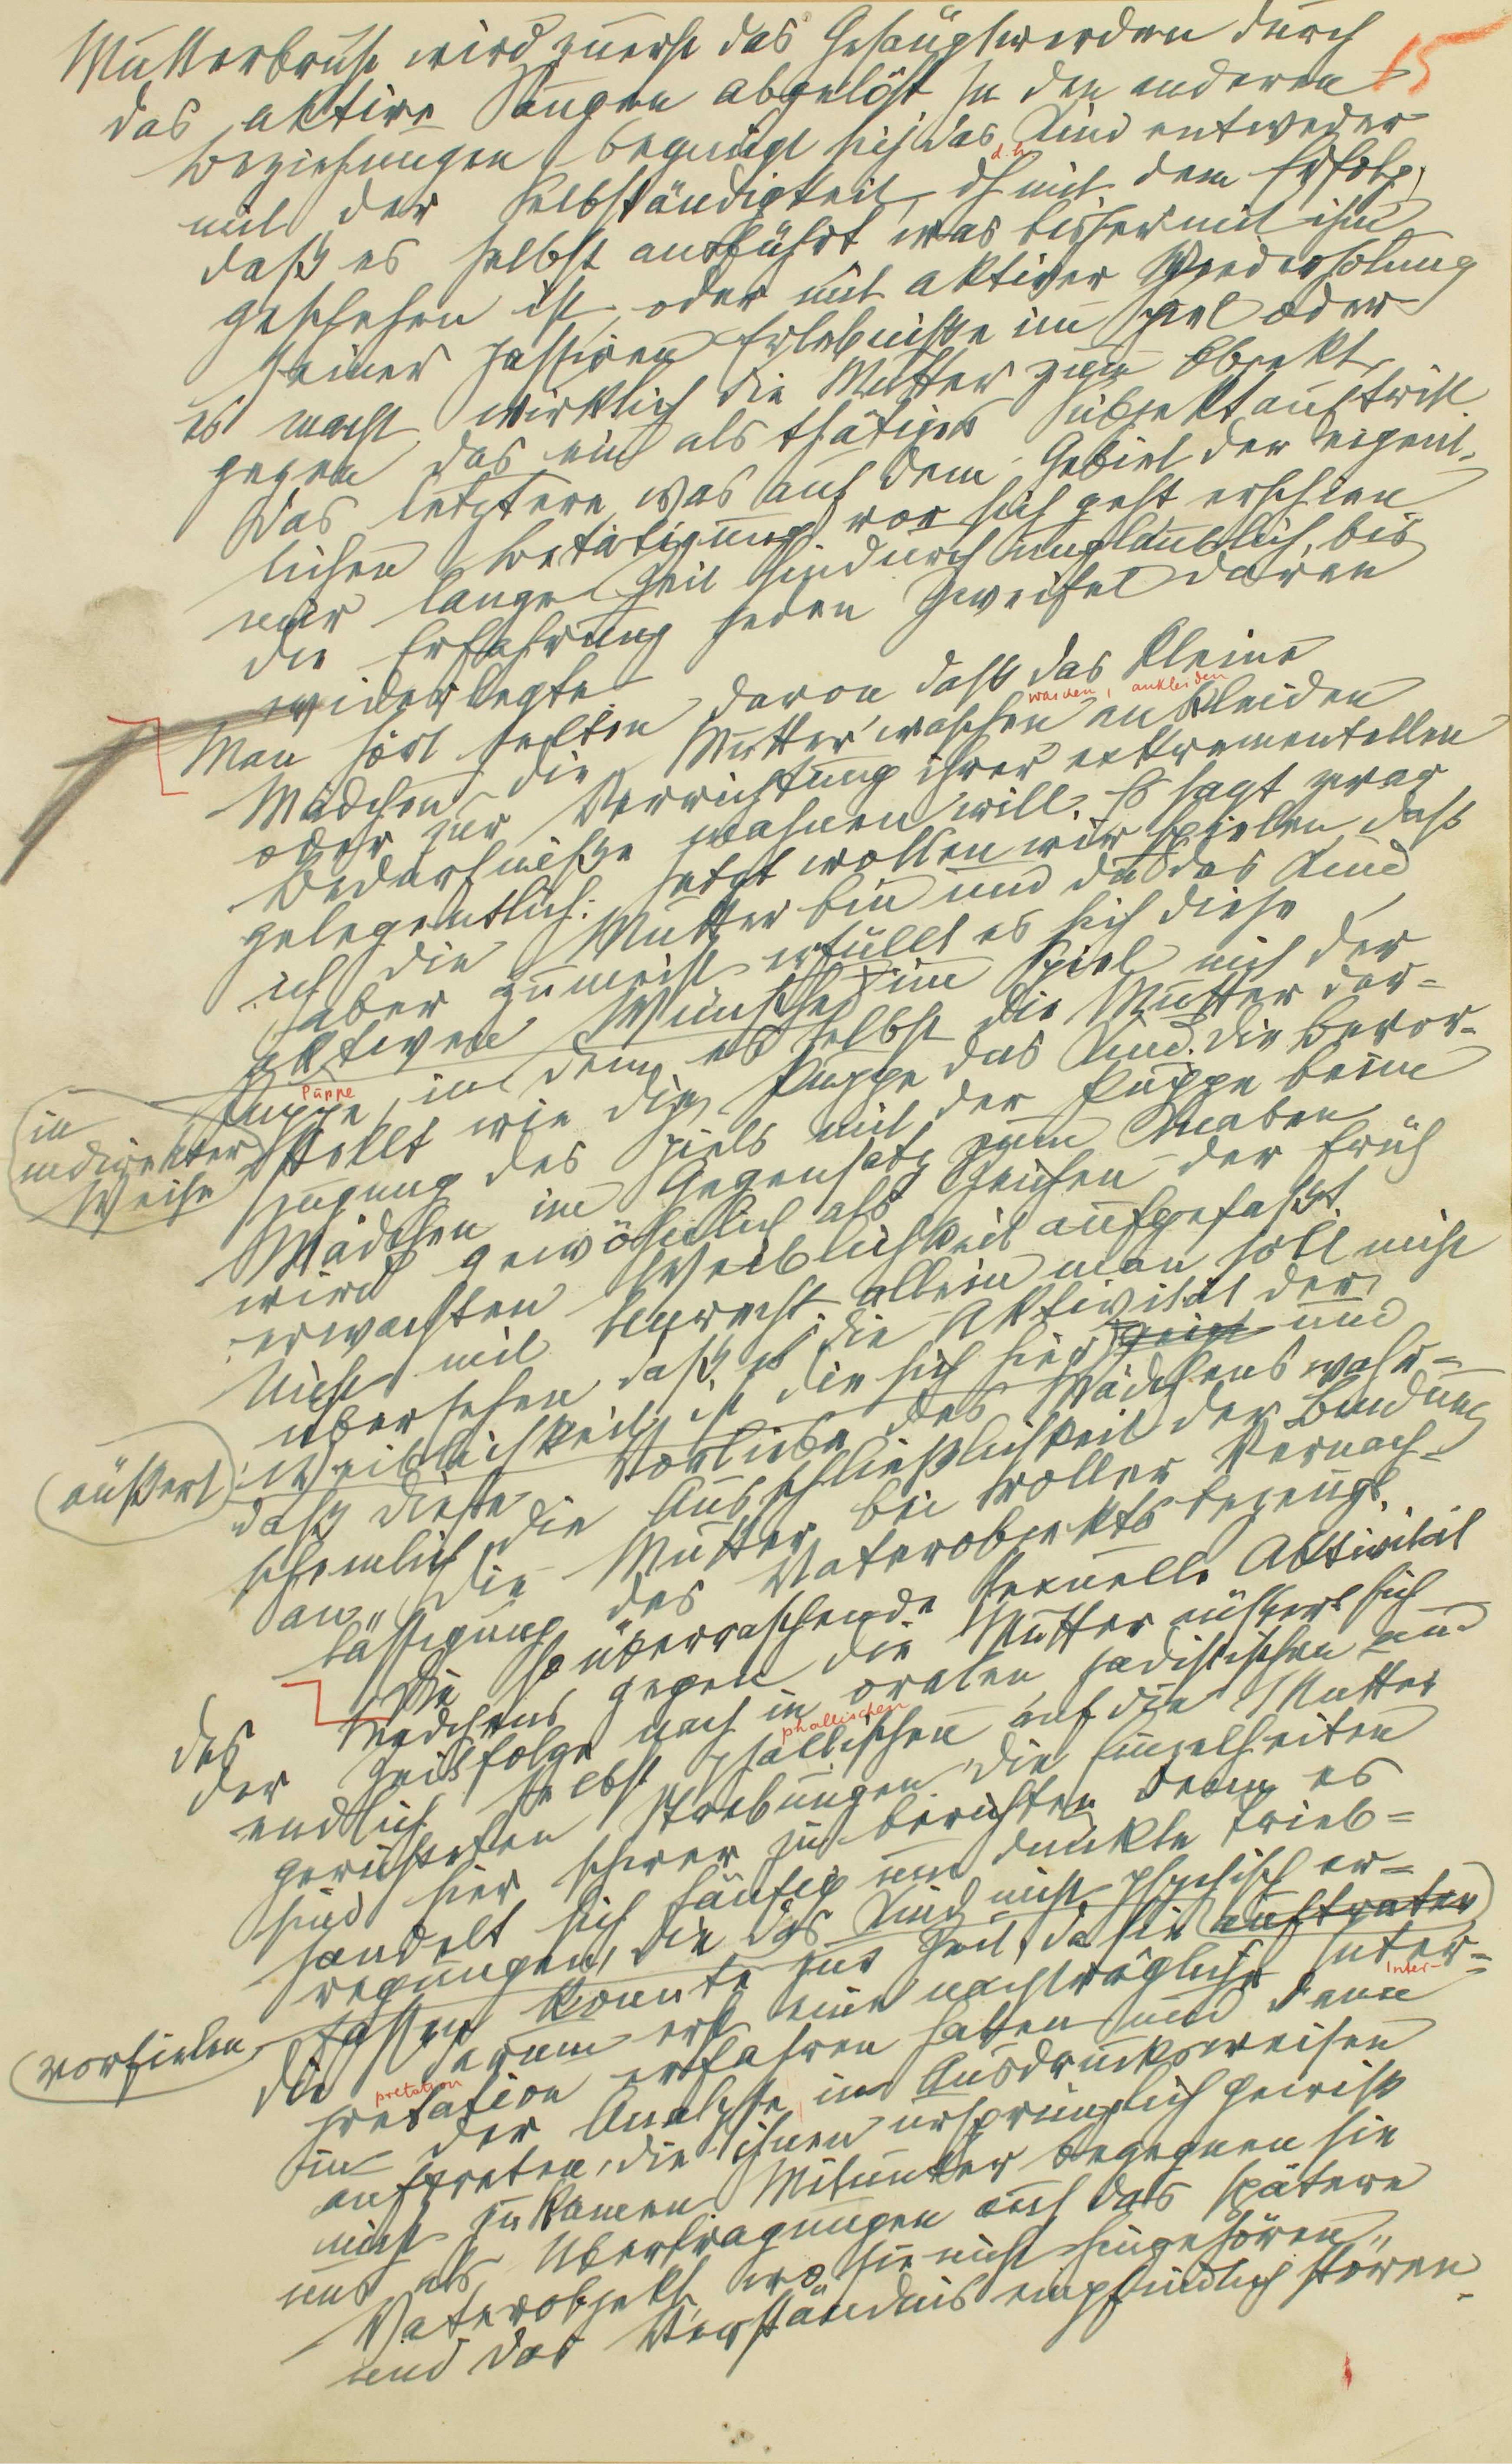 15
Mutterbrust wird zuerst das Gesäugtwerden durch
das aktive Saugen abgelöst. In den anderen
Beziehungen begnügt sich das Kind entweder
d. h.
mit der Selbständigkeit, dh mit dem Erfolg,
daß es selbst ausführt was bisher mit ihm
geschehen ist, oder mit aktiver Wiederholung
seiner passiven Erlebnisse im Spiel oder
es macht wirklich die Mutter zum Objekt,
gegen das es als thätiges Subjekt auftritt.
Das letztere, was auf dem Gebiet der eigent-
lichen Betätigung vor sich geht erschien
mir lange Zeit hindurch unglaublich, bis
die Erfahrung jeden Zweifel daran
widerlegte.
Man hört selten davon daß das kleine
waschen, ankleiden
Mädchen die Mutter waschen ankleiden
oder zur Verrichtung ihrer exkrementellen
Bedürfnisse mahnen will. Es sagt zwar
gelegentlich: jetzt wollen wir spielen, daß
ich die Mutter bin und du das Kind
aber zumeist erfüllt es sich diese
aktiven Wünsche im Spiel mit der
in
indirekter
Weise
Puppe
Puppe, in dem es selbst die Mutter dar-
stellt wie die Puppe das Kind. Die Bevor-
zugung des Spiels mit der Puppe beim
Mädchen im Gegensatz zum Knaben
wird gewöhnlich als Zeichen der früh
erwachten Weiblichkeit aufgefaßt.
Nicht mit Unrecht, allein man soll nicht
übersehen, daß es die Aktivität der
Weiblichkeit ist die sich hier zeigt und
äußert
daß diese Vorliebe des Mädchens wahr-
scheinlich die Ausschließlichkeit der Bindung
an die Mutter bei voller Vernach-
lässigung des Vaterobjekts bezeugt.
Die so überraschende sexuelle Aktivität
des Mädchens gegen die Mutter äußert sich
der Zeitfolge nach in oralen, sadistischen und
phallischen
endlich selbst phallischen auf die Mutter
gerichteten Strebungen. Die Einzelheiten
sind hier schwer zu berichten denn es
handelt sich häufig um dunkle Trieb-
regungen, die das Kind nicht psychisch er-
fassen konnte zur Zeit, da sie auftraten
vorfielen,
die darum erst eine nachträgliche Inter-
Inter-
pretation
pretation erfahren haben und dann
in der Analyse in Ausdrucksweisen
auftreten, die ihnen ursprünglich gewiß
nicht zukamen. Mitunter begegnen sie
uns als Übertragungen auf das spätere
Vaterobjekt, wo sie nicht hingehören
und das Verständnis empfindlich stören.